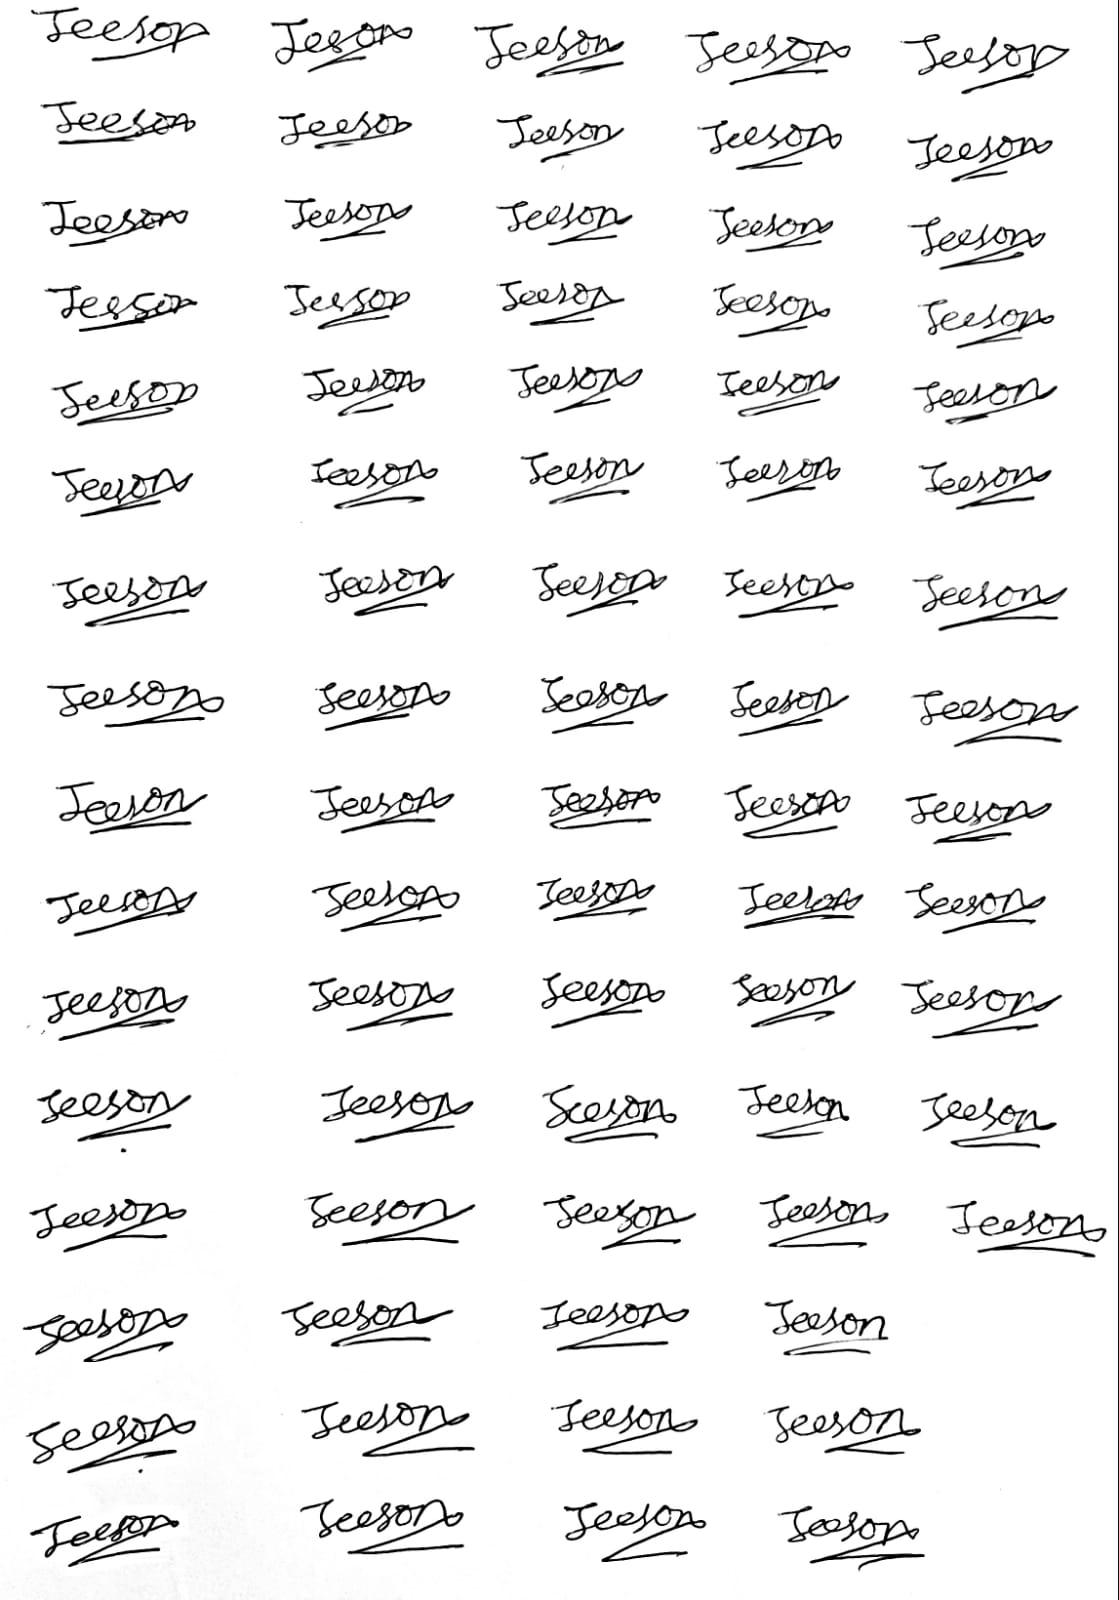 Jeeson Jeson Jeeson Jeeson Jeeson
Jeeson Jeeson Jeeson Jeeson Jeeson
Jeeson Jeeson Jeeson Jeeson Jeeson
Jeeson Jeeson Jeeson Jeeson Jeeson
Jeeson Jeeson Jeeson Jeeson Jeeson
Jeeson Jeeson Jeeson Jeeson Jeeson
Jeeson Jeeson Jeeson Jeeson Jeeson
Jeeson Jeeson Jeeson Jeeson Jeeson
Jeeson Jeeson Jeeson Jeeson Jeeson
Jeeson Jeeson Jeeson Jeeson Jeeson
Jeeson Jeeson Jeeson Jeeson Jeeson
Jeeson Jeeson Jeeson Jeeson Jeeson
Jeeson Jeeson Jeeson Jeeson Jeeson
Jeeson Jeeson Jeeson Jeeson
Jeeson Jeeson Jeeson Jeeson
Jeeson Jeeson Jeeson Jeeson